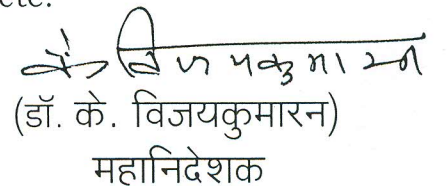 etc.
के विजयकुमारन
(डॉ. के. विजयकुमारन)
महानिदेशक